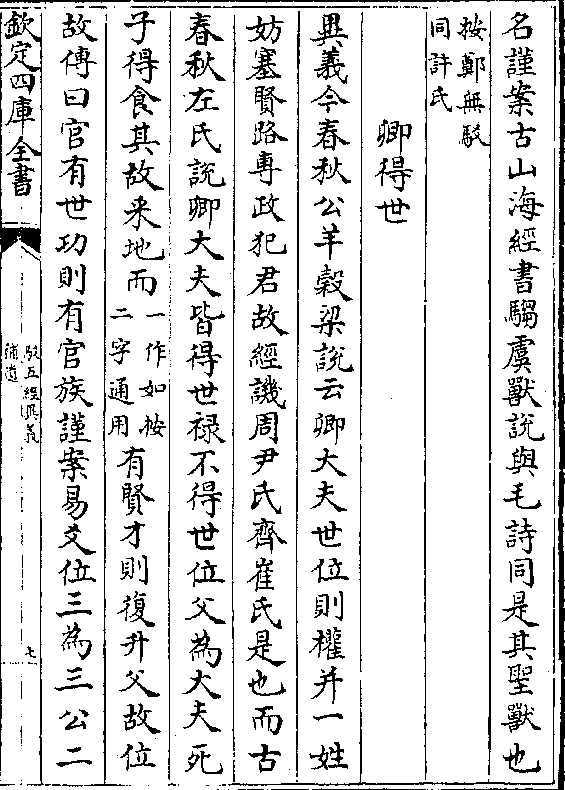 名謹案古山海經書騶虞獸說與毛詩同是其聖獸也
按鄭無駁
同許氏
卿得世
異義今春秋公羊穀梁說云卿大夫世位則權并一姓
妨塞賢路專政犯君故經譏周尹氏齊崔氏是也而古
春秋左氏說卿大夫皆得世禄不得世位父為大夫死
子得食其故采地而
一作如按
二字通用
有賢才則復升父故位
故傳曰官有世功則有官族謹案易爻位三為三公二
欽定四庫全書
駁五經異義
補遺
七